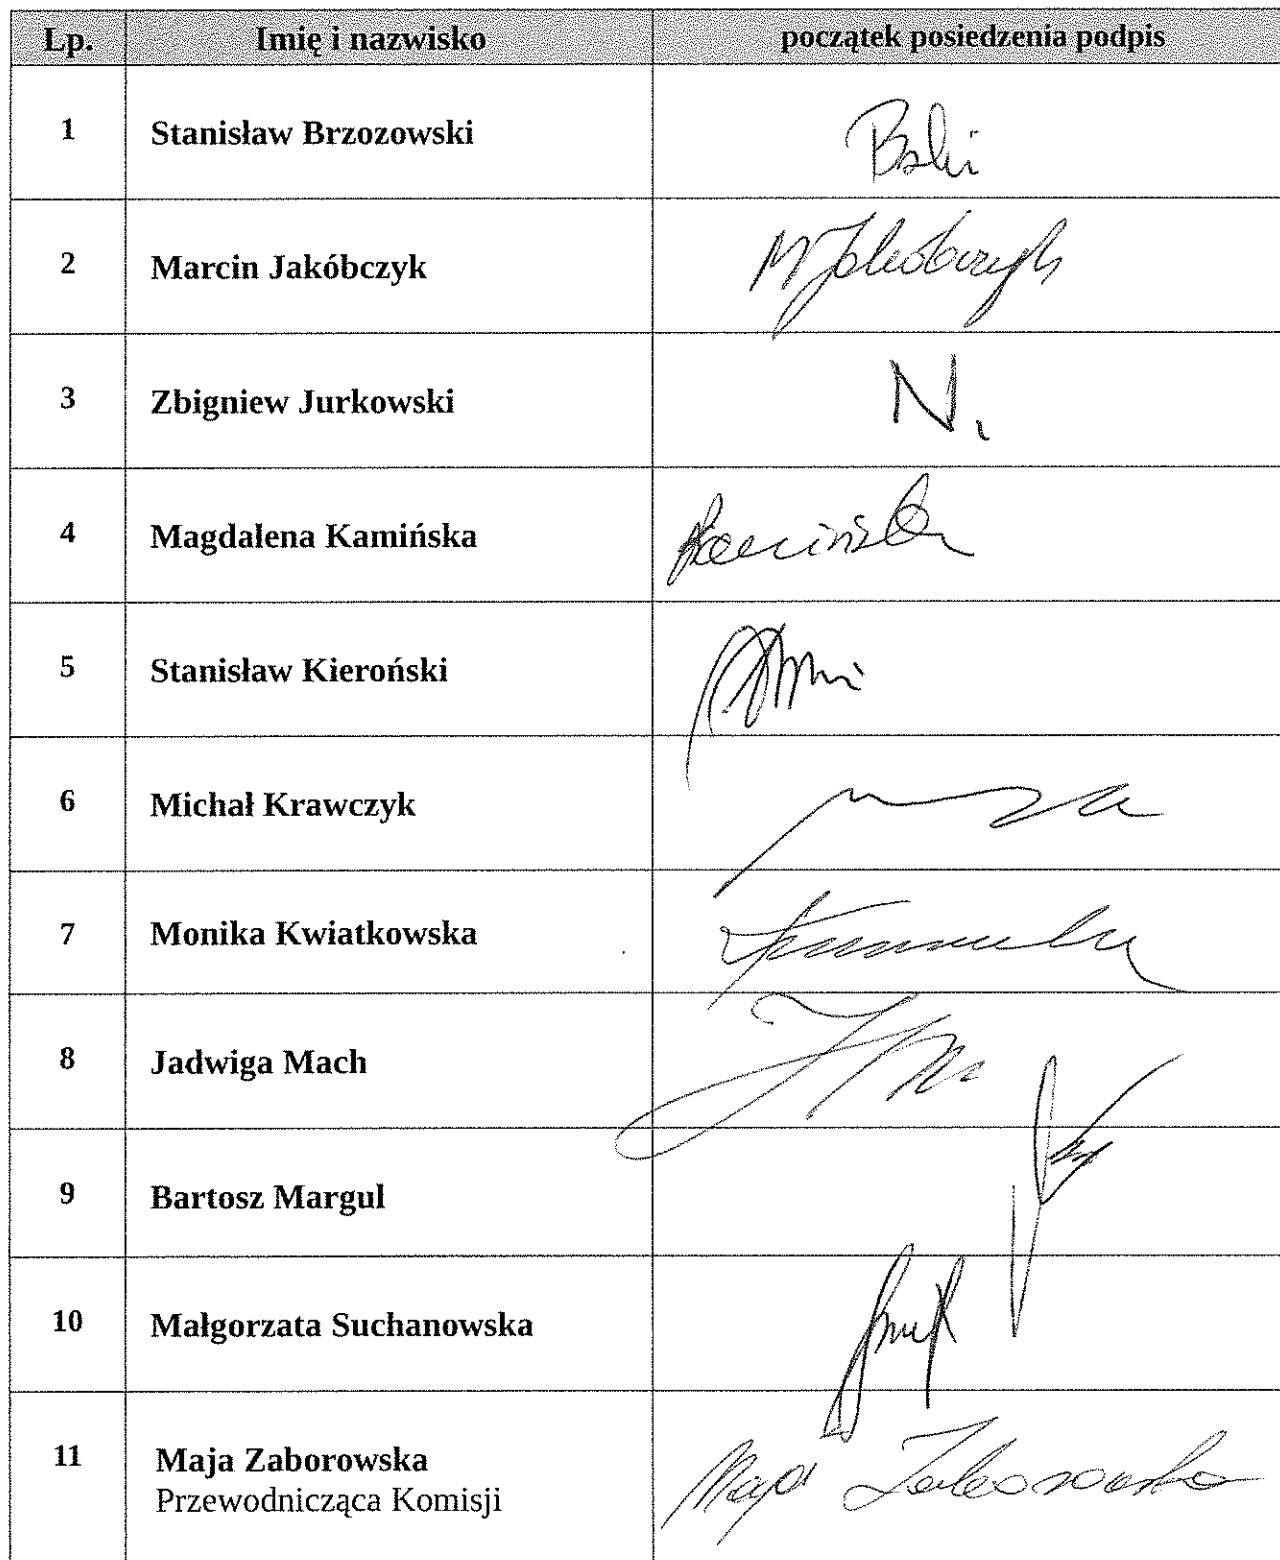 Lp. Imię i nazwisko początek posiedzenia podpis
1 Stanisław Brzozowski
2 Marcin Jakóbczyk MJakóbczyk
3 Zbigniew Jurkowski N.
4 Magdalena Kamińska Kamińska
5 Stanisław Kieroński
6 Michał Krawczyk
7 Monika Kwiatkowska
8 Jadwiga Mach
9 Bartosz Margul
10 Małgorzata Suchanowska
11 Maja Zaborowska Maja Zaborowska
Przewodnicząca Komisji